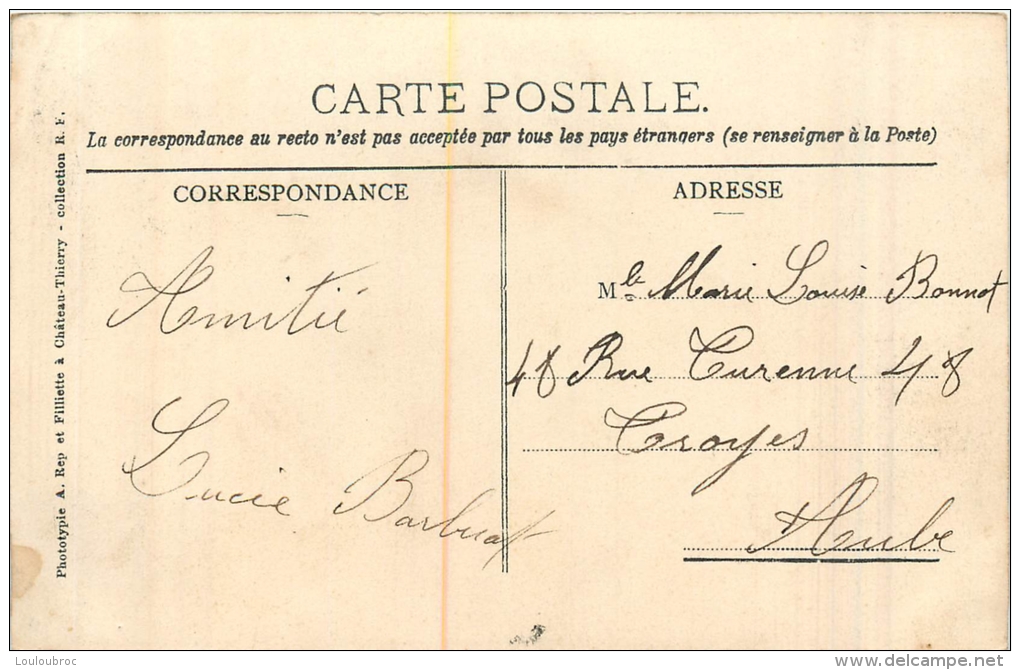 CARTE POSTALE.
La correspondance au recto n'est pas acceptée par tous les pays étrangers (se renseigner à la Poste)
Phototypie A. Rep et Filliette à Château-Thierry - collection R. F.
CORRESPONDANCE
Amitié
Lucie Barbuat
ADRESSE
Mle Marie Louise Bonnot
48 Rue Turenne 48
Troyes
Aube
Louloubroc
delcampe.net